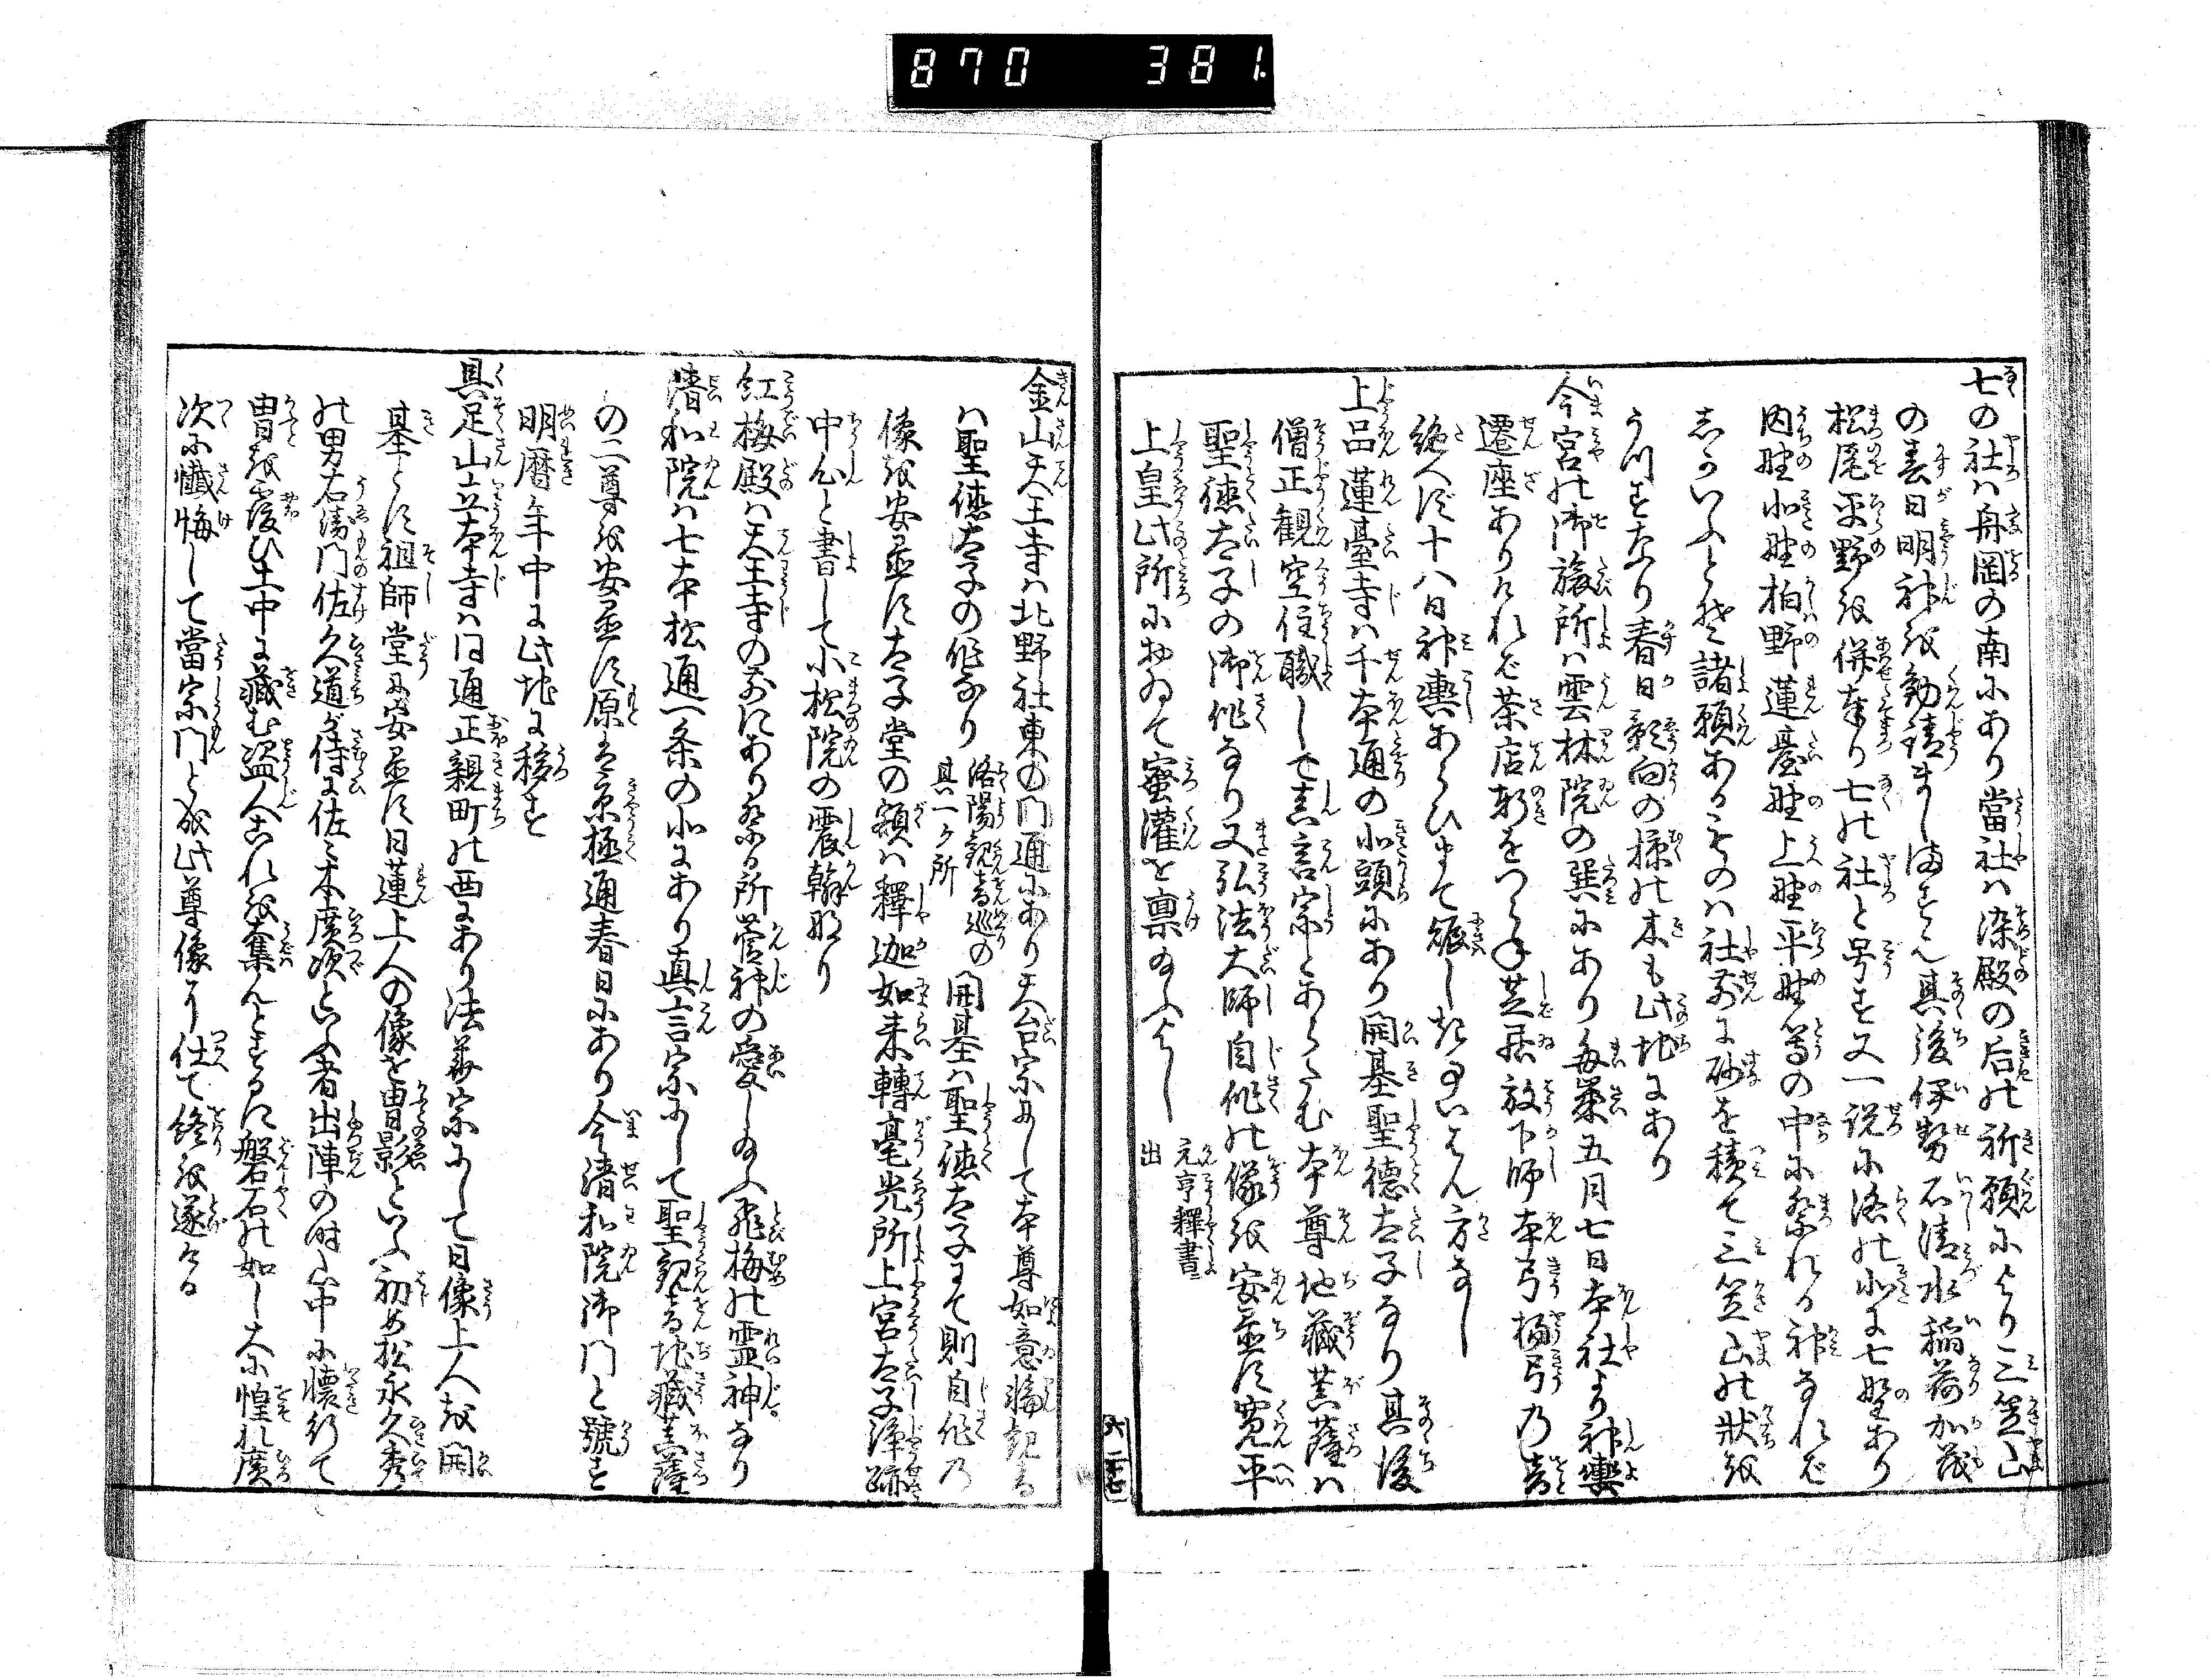 870 381.
七の社は舟岡の南にあり當社は染殿の后の祈願により三笠山
の春日明神を勧請ましますとぞ其後伊勢石清水稲荷加茂
松尾平野を併奉り七の社と号す又一説に洛の北に七野あり
内野北野柏野蓮臺野上野平野等の中に祭れる神なれば
しかいふとぞ諸願あるものは社前に砂を積て三笠山の状を
うつすなり春日影向の椋の木も此地にあり
今宮の御旅所は雲林院の巽にあり毎歳五月七日本社より神輿
遷座ありければ茶店軒をつらね芝居放下師本弓楊弓乃音
絶へず十八日神輿あらひまで賑しきすいはん方なし
上品蓮臺寺は千本通の北頭にあり開基聖徳太子なり其後
僧正観空住職して真言宗とあらたむ本尊地蔵菩薩は
聖徳太子の御作なり又弘法大師自作の像を安置す寛平
上皇此所において蜜灌を稟給ふよし 元亨釋書
出
六 二十七
金山天王寺は北野社東の門通にあり天台宗にして本尊如意輪観音
は聖徳太子の作なり 洛陽観音巡の
其一ケ所 開基は聖徳太子にて則自作乃
像を安置す太子堂の額は釋迦如来轉毫光所上宮太子浄跡
中心と書して小松院の震翰なり
紅梅殿は天王寺の前にあり祭る所菅神の愛し給ふ飛梅の霊神なり
清和院は七本松通一条の北にあり真言宗にして聖観音地蔵菩薩
の二尊を安置す原は京極通春日にあり今清和院御門と號す
明暦年中に此地に移す
具足山立本寺は同通正親町の西にあり法華宗にして日像上人を開
基とす祖師堂に安置す日蓮上人の像を曹影といふ初め松永久秀
の男右衛門佐久道が侍に佐々木廣次といふ者出陣の時山中に懐行て
曹を覆ひ土中に蔵む盗人これを奪んとするに磐石の如し大に惶れ廣
次に懺悔して當宗門と成此尊像に仕て終を遂ける